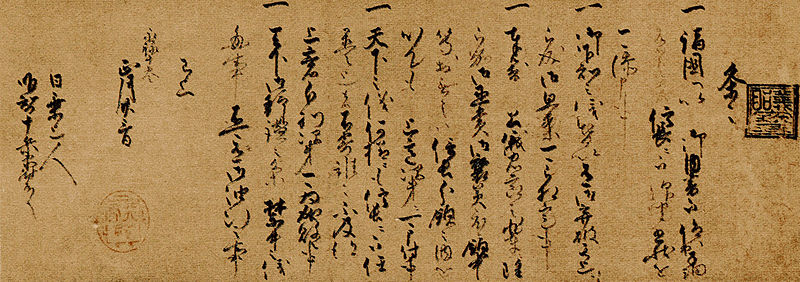 条々
一 諸国へ以御内書被仰出子細
有之者信長ニ被仰聞書状を
可添申事
一 御下知之儀皆以有御棄破其上
被成御思案可被相定事
一 奉対 公儀忠節之輩雖
被加御恩賞御褒美度候領中
等於無之ハ信長分領之内を
以ても上意次第ニ可申付事
一 天下之儀何様ニも信長ニ被任
置之上者不寄誰々不及得
上意分別次第可為成敗事
一 天下御静謐之条禁中之儀
毎事不可有御油断之事
已上
永禄十参
正月廿三日
日乗上人
明智十兵衛尉殿